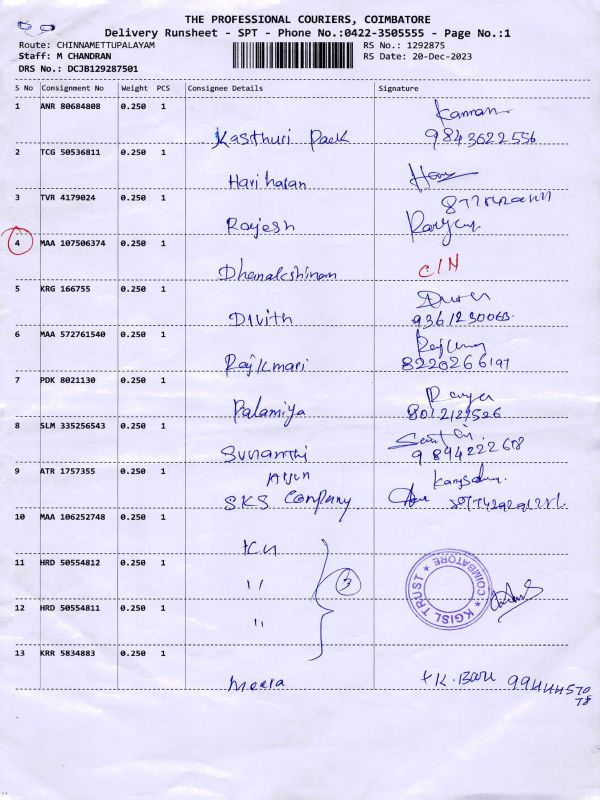 THE PROFESSIONAL COURIERS, COIMBATORE
Delivery Runsheet - SPT - Phone No.:0422-3505555 - Page No.:1
Route: CHINNAMETTUPALAYAM RS No.: 1292875
Staff: M CHANDRAN RS Date: 20-Dec-2023
DRS No.: DCJB129287501
S No Consignment No Weight PCS Consignee Details Signature
1 ANR 80684808 0.250 1 Kannan
Kasthuri Pack 9843622556
2 TCG 50536811 0.250 1
Hariharan
3 TVR 4179024 0.250 1
Rajesh
4 MAA 107506374 0.250 1
Dhanalkshimam C/N
5 KRG 166755 0.250 1
Divith 9361230063
6 MAA 572761540 0.250 1
Rajkmari 8220266197
7 PDK 8021130 0.250 1
Palamiya 8012127526
8 SLM 335256543 0.250 1
Sunanthi 9894222678
9 ATR 1757355 0.250 1
SKS Company
10 MAA 106252748 0.250 1
11 HRD 50554812 0.250 1
" 3
12 HRD 50554811 0.250 1
"
KGISL TRUST * COIMBATORE *
13 KRR 5834883 0.250 1
Meera K. Baru 9944457078